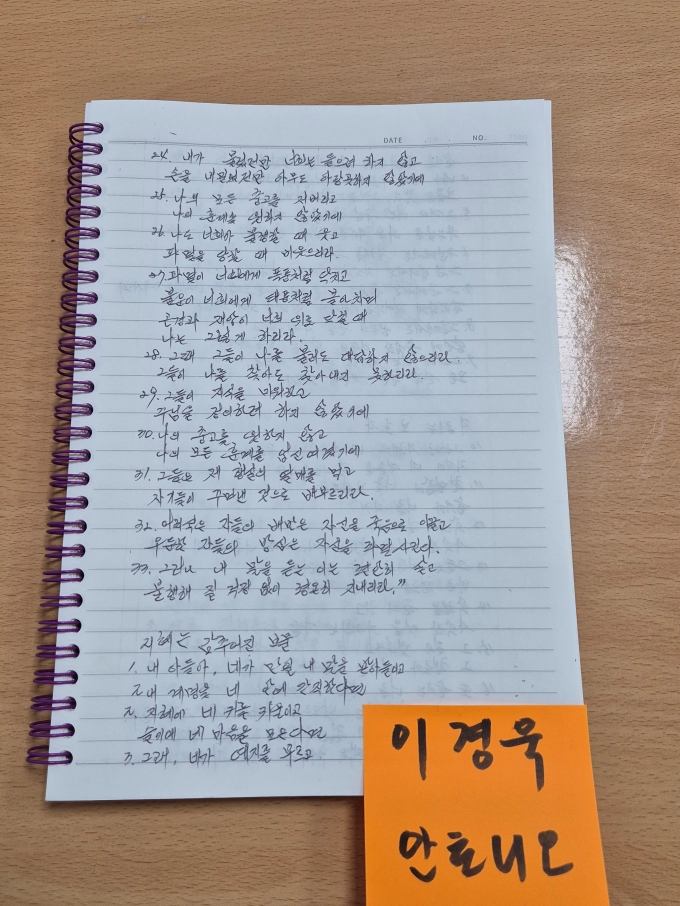 DATE NO.
24. 내가 불렀건만 너희는 들으려 하지 않고
손을 내밀었건만 아무도 아랑곳하지 않았기에
25. 나의 모든 충고를 저버리고
나의 훈계를 원하지 않았기에
26. 나도 너희가 불행할 때 웃고
파멸을 당할 때 비웃으리라.
27. 파멸이 너희에게 폭풍처럼 닥치고
불운이 너희에게 태풍처럼 몰아치며
곤경과 재앙이 너희 위로 닥칠 때
나는 그렇게 하리라.
28. 그때 그들이 나를 불러도 대답하지 않으리라.
그들이 나를 찾아도 찾아내지 못하리라.
29. 그들이 지식을 미워하고
주님을 경외하려 하지 않았기에
30. 나의 충고를 원하지 않고
나의 모든 훈계를 업신여겼기에
31. 그들은 제 행실의 열매를 먹고
자기들이 꾸며낸 것으로 배부르리라.
32. 어리석은 자들의 배반은 자신을 죽음으로 이끌고
우둔한 자들의 방심은 자신을 파멸시킨다.
33. 그러나 내 말을 듣는 이는 편안히 살고
불행해 질 걱정 없이 평온히 지내리라."
지혜는 감추어진 보물
1. 내 아들아, 네가 만일 내 말을 받아들이고
내 계명을 네 안에 간직한다면
2. 지혜에 네 귀를 기울이고
슬기에 네 마음을 모은다면
3. 그래, 네가 예지를 부르고
이경욱
안토니오